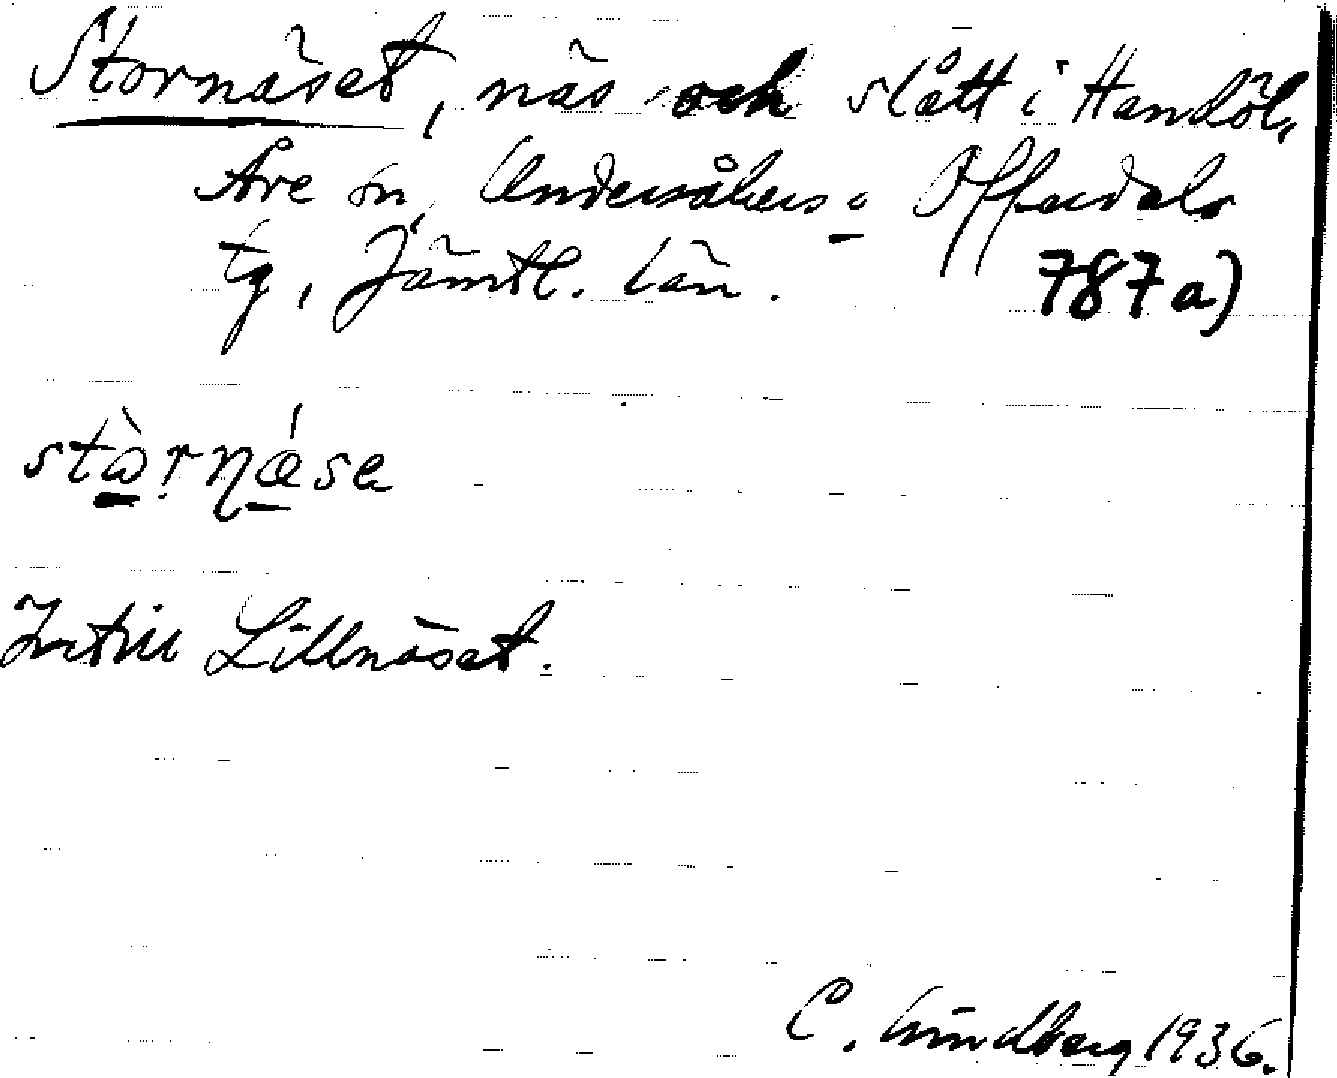 Stornäset, näs och slått i Handöl,
Åre sn, Undersåkers o Offerdals
tg, Jämtl. län. 787 a)
stɷ̀rnǽsa
Intill Lillnäset.
C. Lindberg 1936.